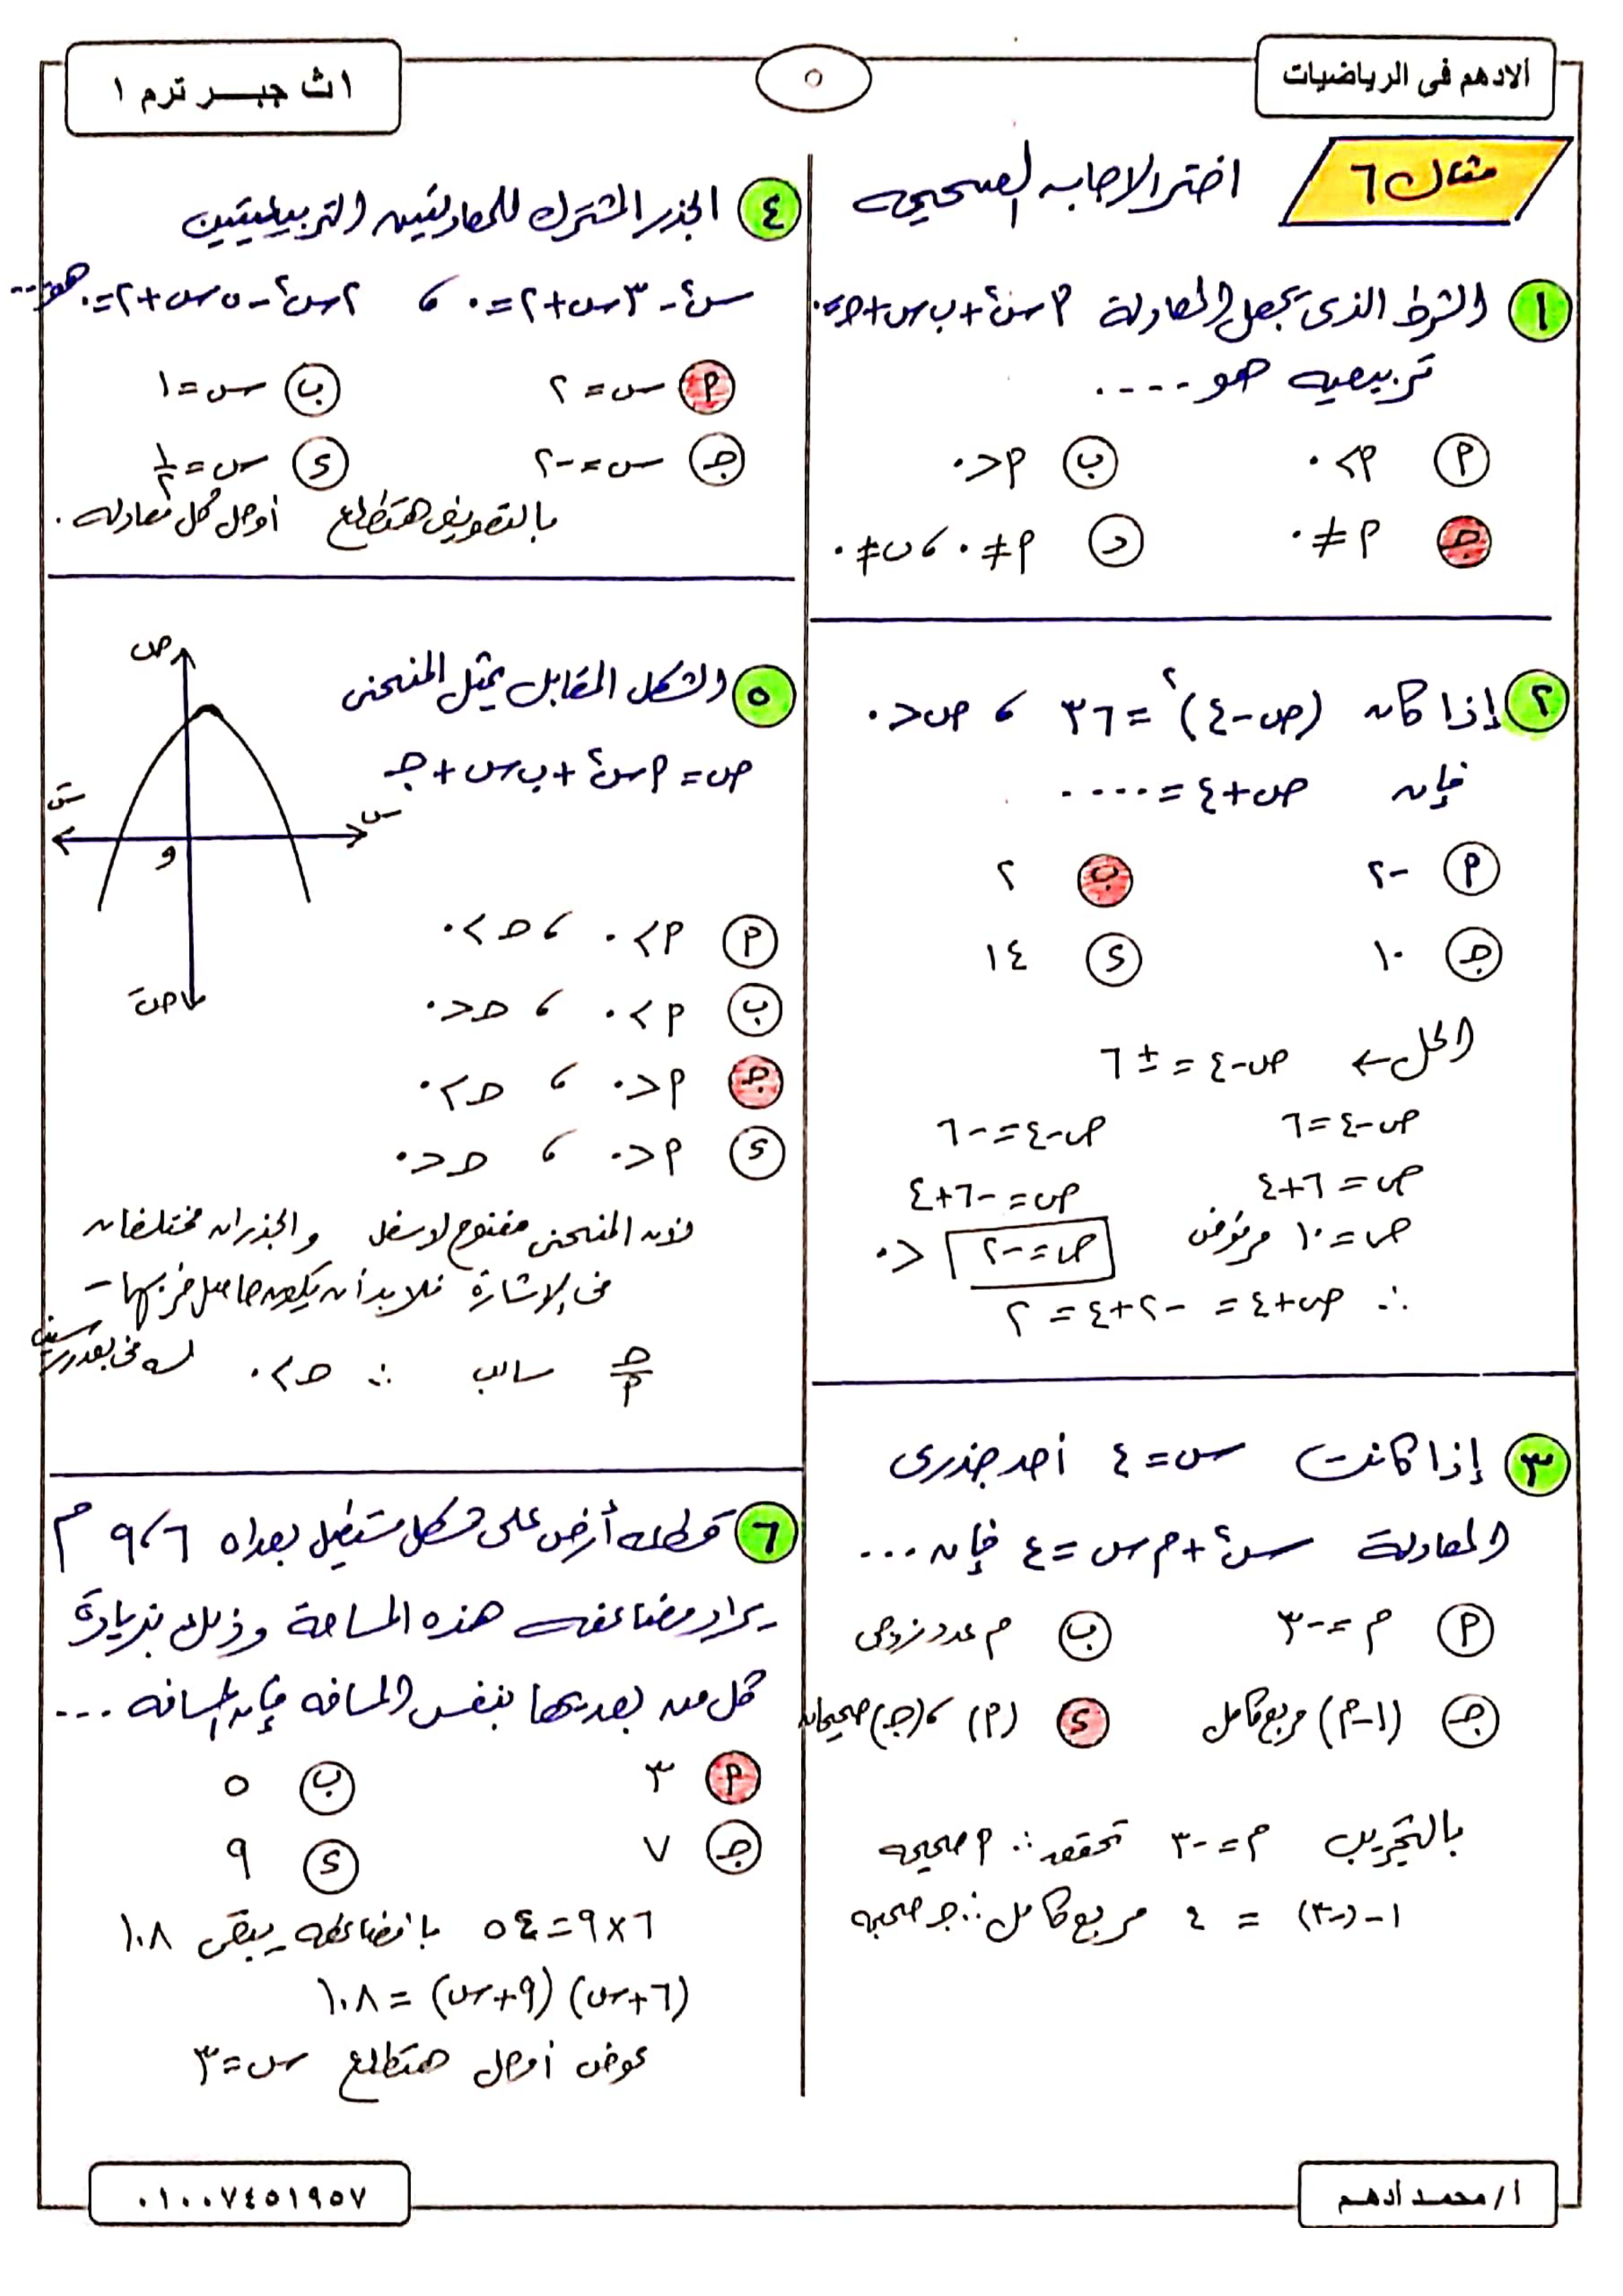 الادهم فى الرياضيات
٥
١ ث جبـــر ترم ١
مثال ٦
اختر الاجابه الصحيحه
١ الشرط الذى يجعل المعادلة م س٢ + ب س + جـ = ٠
تربيعيه هو ....
م م > ٠
ب م < ٠
جـ م ≠ ٠
د م ≠ ٠ ، ب ≠ ٠
٢ إذا كان (ص - ٤)٢ = ٣٦ ، ص < ٠
فإن ص + ٤ = ....
م -٢
ب ٢
جـ ١٠
د ١٤
الحل ← ص - ٤ = ± ٦
ص - ٤ = ٦
ص - ٤ = -٦
ص = ٦ + ٤
ص = -٦ + ٤
ص = ١٠ مرفوض
ص = -٢ < ٠
∴ ص + ٤ = -٢ + ٤ = ٢
٣ إذا كانت س = ٤ أحد جذرى
المعادلة س٢ + م س = ٤ فإن ...
م م = -٣
ب م عدد زوجى
جـ (١ - م) مربع كامل
د (م) ، (جـ) صحيحان
بالتجريب م = -٣ تحققه ∴ م صحيحه
١ - (-٣) = ٤ مربع كامل ∴ جـ صحيحه
٤ الجذر المشترك للمعادلتين التربيعيتين
س٢ - ٣س + ٢ = ٠ ، ٢س٢ - ٥س + ٢ = ٠ هو ...
م س = ٢
ب س = ١
جـ س = -٢
د س = ١/٢
بالتعويض هتطلع أوحل كل معادله .
٥ الشكل المقابل يمثل المنحنى
ص = م س٢ + ب س + جـ
ص
سَ
س
و
صَ
م م > ٠ ، حـ > ٠
ب م > ٠ ، حـ < ٠
جـ م < ٠ ، حـ > ٠
د م < ٠ ، حـ < ٠
لأن المنحنى مفتوح لاسفل والجذران مختلفان
فى الإشارة فلابد أن يكون حاصل ضربهما -
حـ/م سالب ∴ حـ > ٠
٦ قطعه أرض على شكل مستطيل بعداه ٦ ، ٩ م
يراد مضاعفه هذه المساحة وذلك بزيادة
كل من بعديها بنفس المسافه فإن المسافه ...
م ٣
ب ٥
جـ ٧
د ٩
٦ × ٩ = ٥٤ بالمضاعفه يبقى ١٠٨
(٦ + س) (٩ + س) = ١٠٨
عوض أوحل هتطلع س = ٣
أ / محمد أدهم
٠١٠٠٧٤٥١٩٥٧